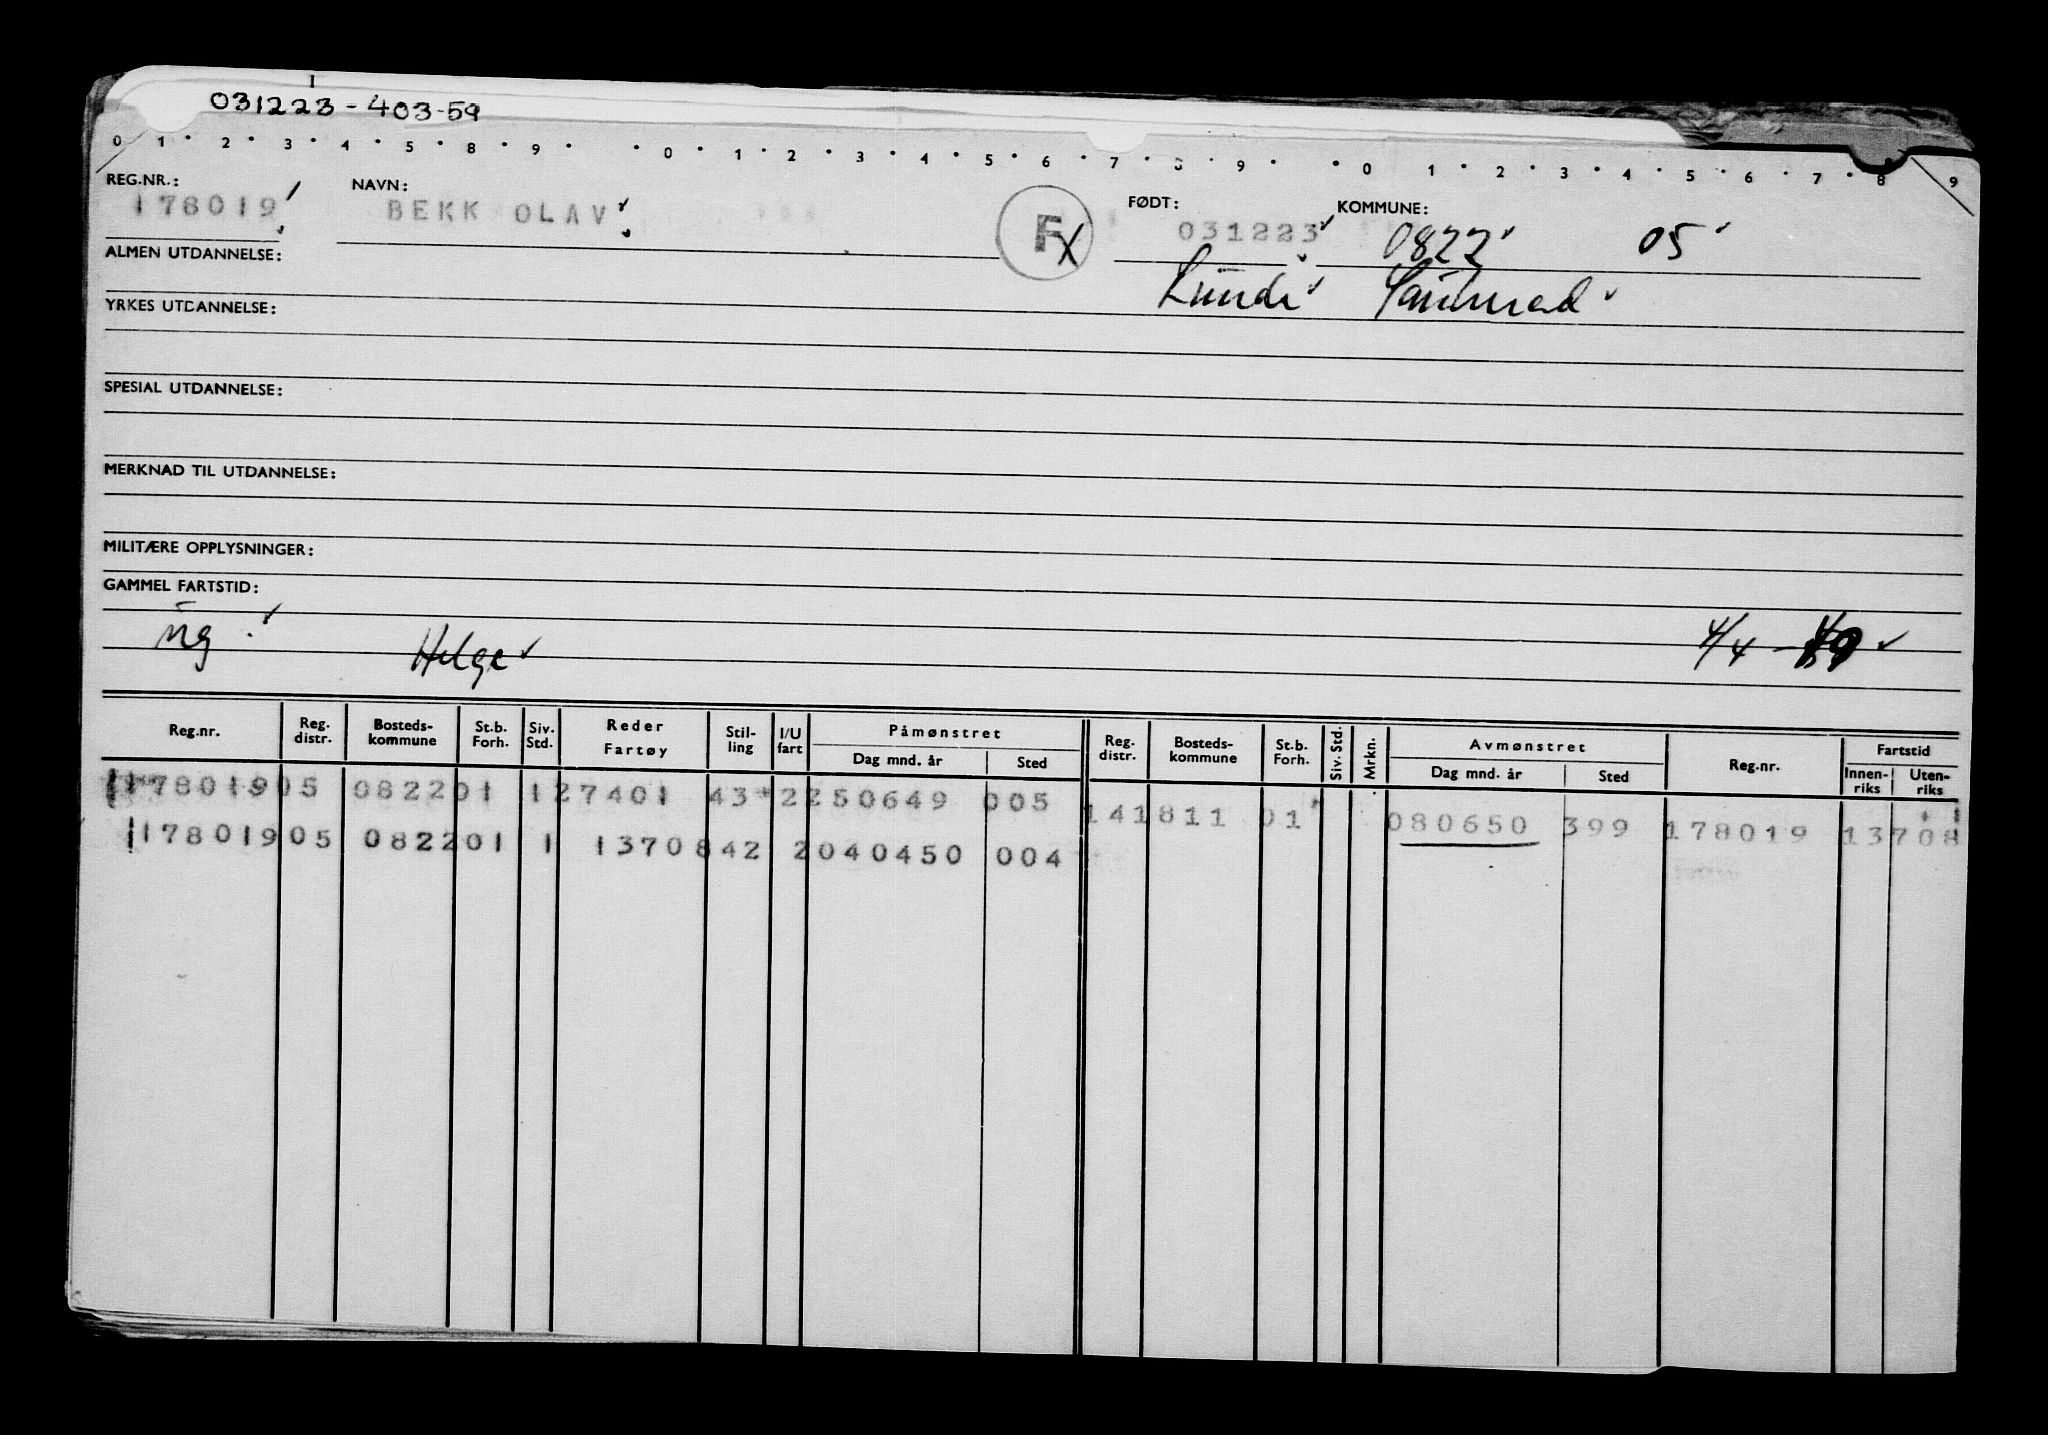 031223-403-59
0 1 2 3 4 5 8 9 0 1 2 3 4 5 6 7 8 9 0 1 2 3 4 5 6 7 8 9
REG.NR.: NAVN: FØDT: KOMMUNE:
178019 BEKK OLAV F X 031223 0822 05
ALMEN UTDANNELSE: Lunde
YRKES UTDANNELSE:
SPESIAL UTDANNELSE:
MERKNAD TIL UTDANNELSE:
MILITÆRE OPPLYSNINGER:
GAMMEL FARTSTID:
ug Helge 4/4
Reg.nr. Reg. distr. Bosteds-kommune St.b. Forh. Siv. Std. Reder Fartøy Stil-ling I/U fart Påmønstret Dag mnd. år Sted Reg. distr. Bosteds-kommune St.b. Forh. Siv. Std. Mrkn. Avmønstret Dag mnd. år Sted Reg.nr. Fartstid Innen-riks Uten-riks
178019 05 0822 01 1 27401 43 2 250649 005 14 1811 01 080650 399 178019 13708
178019 05 0822 01 1 13708 42 2 040450 004